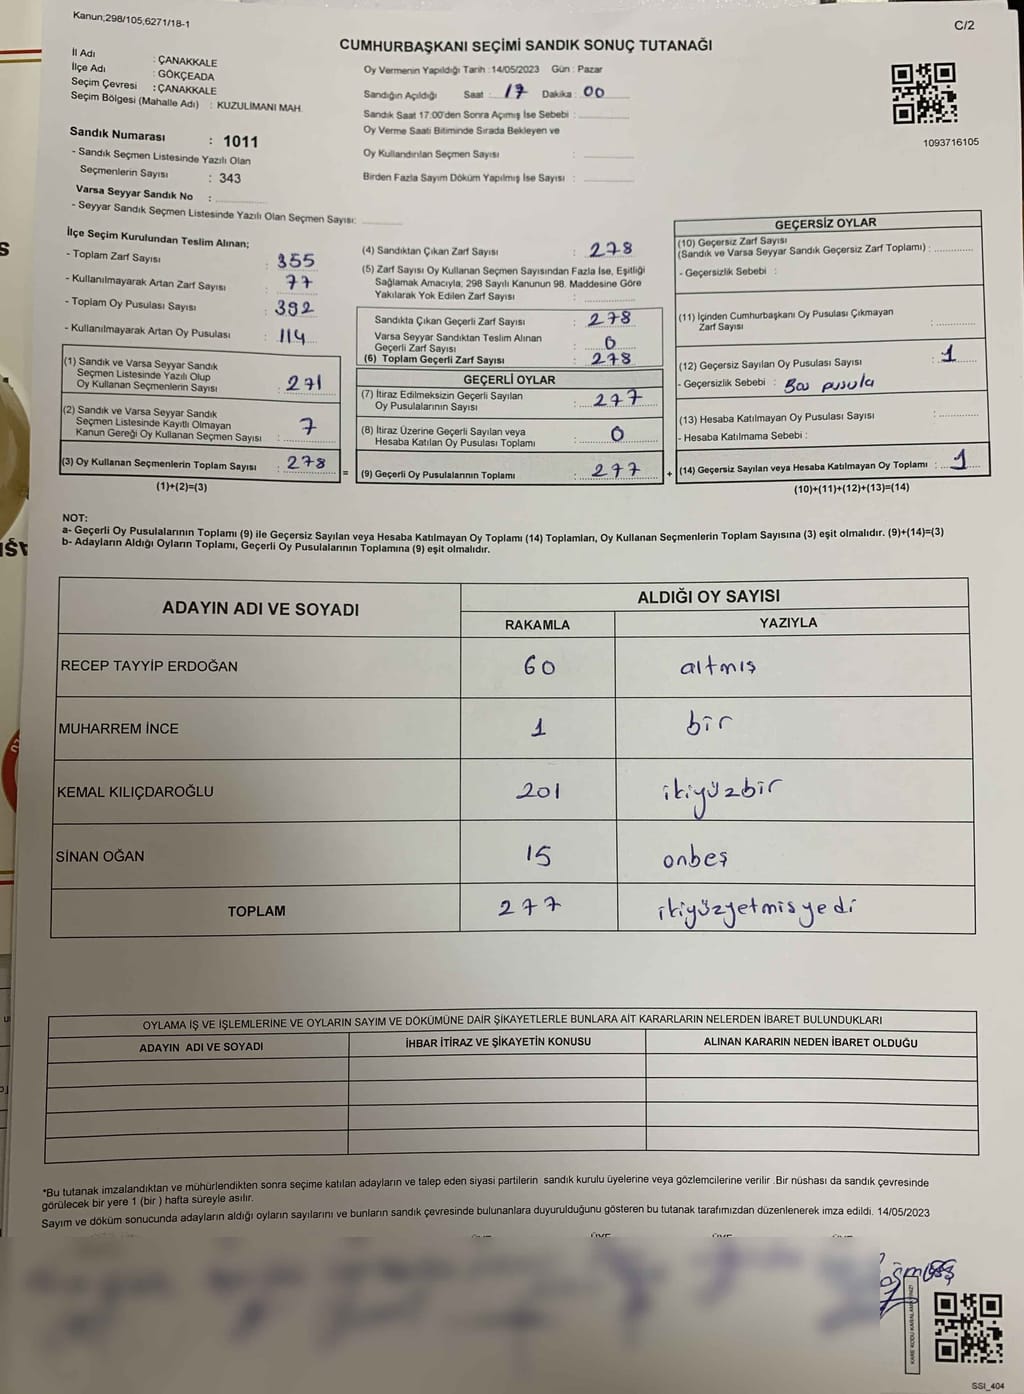 Kanun;298/105;6271/18-1
C/2
CUMHURBAŞKANI SEÇİMİ SANDIK SONUÇ TUTANAĞI
İl Adı : ÇANAKKALE
İlçe Adı : GÖKÇEADA
Seçim Çevresi : ÇANAKKALE
Seçim Bölgesi (Mahalle Adı) : KUZULİMANI MAH.
Sandık Numarası : 1011
- Sandık Seçmen Listesinde Yazılı Olan
Seçmenlerin Sayısı : 343
Varsa Seyyar Sandık No :
- Seyyar Sandık Seçmen Listesinde Yazılı Olan Seçmen Sayısı:
Oy Vermenin Yapıldığı Tarih :14/05/2023 Gün : Pazar
Sandığın Açıldığı Saat : 17 Dakika : 00
Sandık Saat 17:00'den Sonra Açımış İse Sebebi :
Oy Verme Saati Bitiminde Sırada Bekleyen ve
Oy Kullandırılan Seçmen Sayısı :
Birden Fazla Sayım Döküm Yapılmış İse Sayısı :
1093716105
İlçe Seçim Kurulundan Teslim Alınan;
- Toplam Zarf Sayısı : 355
- Kullanılmayarak Artan Zarf Sayısı : 77
- Toplam Oy Pusulası Sayısı : 392
- Kullanılmayarak Artan Oy Pusulası : 114
(1) Sandık ve Varsa Seyyar Sandık
Seçmen Listesinde Yazılı Olup
Oy Kullanan Seçmenlerin Sayısı : 271
(2) Sandık ve Varsa Seyyar Sandık
Seçmen Listesinde Kayıtlı Olmayan
Kanun Gereği Oy Kullanan Seçmen Sayısı : 7
(3) Oy Kullanan Seçmenlerin Toplam Sayısı : 278
(1)+(2)=(3)
(4) Sandıktan Çıkan Zarf Sayısı : 278
(5) Zarf Sayısı Oy Kullanan Seçmen Sayısından Fazla İse, Eşitliği
Sağlamak Amacıyla; 298 Sayılı Kanunun 98. Maddesine Göre
Yakılarak Yok Edilen Zarf Sayısı :
Sandıkta Çıkan Geçerli Zarf Sayısı : 278
Varsa Seyyar Sandıktan Teslim Alınan
Geçerli Zarf Sayısı : 0
(6) Toplam Geçerli Zarf Sayısı : 278
GEÇERLİ OYLAR
(7) İtiraz Edilmeksizin Geçerli Sayılan
Oy Pusulalarının Sayısı : 277
(8) İtiraz Üzerine Geçerli Sayılan veya
Hesaba Katılan Oy Pusulası Toplamı : 0
= (9) Geçerli Oy Pusulalarının Toplamı : 277 +
GEÇERSİZ OYLAR
(10) Geçersiz Zarf Sayısı
(Sandık ve Varsa Seyyar Sandık Geçersiz Zarf Toplamı) :
- Geçersizlik Sebebi :
(11) İçinden Cumhurbaşkanı Oy Pusulası Çıkmayan
Zarf Sayısı :
(12) Geçersiz Sayılan Oy Pusulası Sayısı : 1
- Geçersizlik Sebebi : Boş pusula
(13) Hesaba Katılmayan Oy Pusulası Sayısı :
- Hesaba Katılmama Sebebi :
(14) Geçersiz Sayılan veya Hesaba Katılmayan Oy Toplamı : 1
(10)+(11)+(12)+(13)=(14)
NOT:
a- Geçerli Oy Pusulalarının Toplamı (9) ile Geçersiz Sayılan veya Hesaba Katılmayan Oy Toplamı (14) Toplamları, Oy Kullanan Seçmenlerin Toplam Sayısına (3) eşit olmalıdır. (9)+(14)=(3)
b- Adayların Aldığı Oyların Toplamı, Geçerli Oy Pusulalarının Toplamına (9) eşit olmalıdır.
ADAYIN ADI VE SOYADI
ALDIĞI OY SAYISI
RAKAMLA YAZIYLA
RECEP TAYYİP ERDOĞAN 60 altmış
MUHARREM İNCE 1 bir
KEMAL KILIÇDAROĞLU 201 ikiyüzbir
SİNAN OĞAN 15 onbeş
TOPLAM 277 ikiyüzyetmişyedi
OYLAMA İŞ VE İŞLEMLERİNE VE OYLARIN SAYIM VE DÖKÜMÜNE DAİR ŞİKAYETLERLE BUNLARA AİT KARARLARIN NELERDEN İBARET BULUNDUKLARI
ADAYIN ADI VE SOYADI İHBAR İTİRAZ VE ŞİKAYETİN KONUSU ALINAN KARARIN NEDEN İBARET OLDUĞU
*Bu tutanak imzalandıktan ve mühürlendikten sonra seçime katılan adayların ve talep eden siyasi partilerin sandık kurulu üyelerine veya gözlemcilerine verilir .Bir nüshası da sandık çevresinde
görülecek bir yere 1 (bir ) hafta süreyle asılır.
Sayım ve döküm sonucunda adayların aldığı oyların sayılarını ve bunların sandık çevresinde bulunanlara duyurulduğunu gösteren bu tutanak tarafımızdan düzenlenerek imza edildi. 14/05/2023
SSI_404